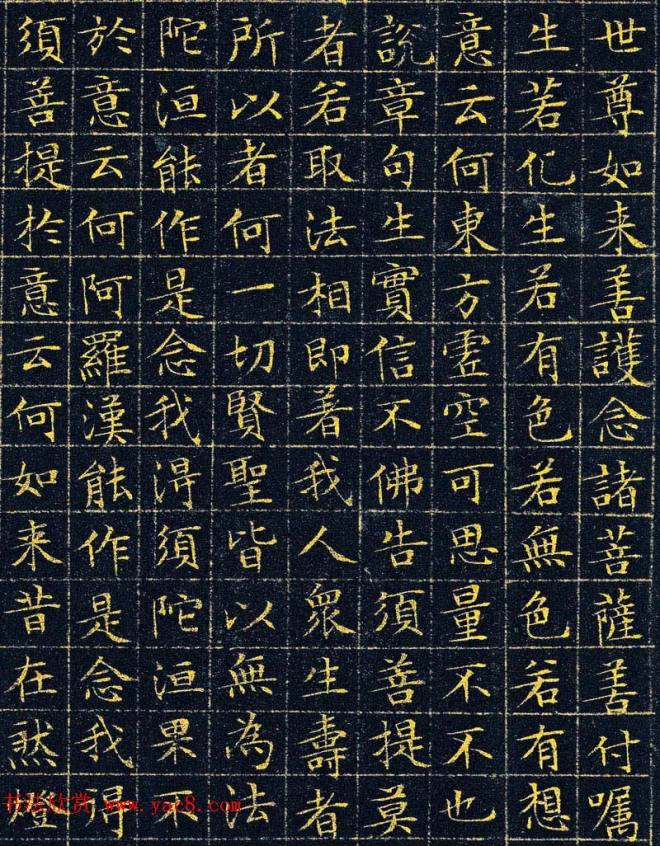 世尊如来善護念諸菩薩善付嘱
生若化生若有色若無色若有想
意云何東方虚空可思量不不也
說章句生實信不佛告須善提莫
者若取法相即著我人衆生壽者
所以者何一切賢聖皆以無為法
陀洹能作是念我得須陀洹果不
於意云何阿羅漢能作是念我得
須善提於意云何如来昔在然燈
书法欣赏 www.yac8.com